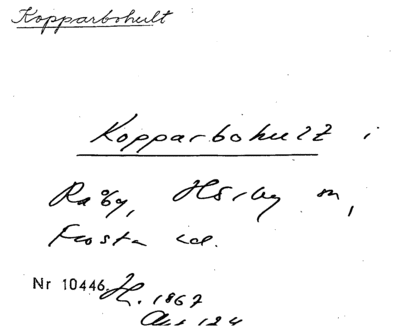 Kopparbohult
Kopparbohult i
Råby, Hörby sn,
Frosta hd.
Nr 10446. H. 1867
Akt 124